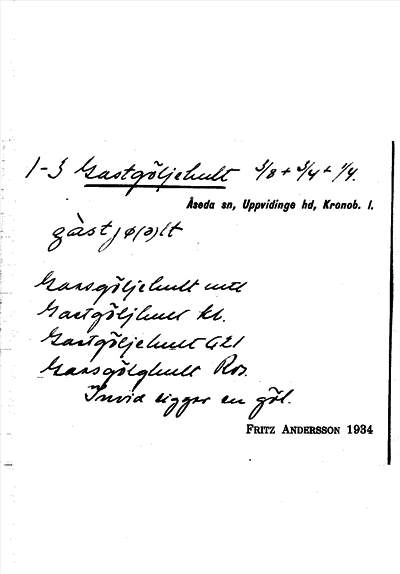 1-3 Gastgöljehult 3/8 + 3/4 + 1/4.
Åseda sn, Uppvidinge hd, Kronob. l.
gàstjø(ə)lt
Gaasgöljehult
Gastgöljhult kk.
Gastgöljehult GEl
Gaasgölghult Ros.
Invid ligger en göl.
FRITZ ANDERSSON 1934